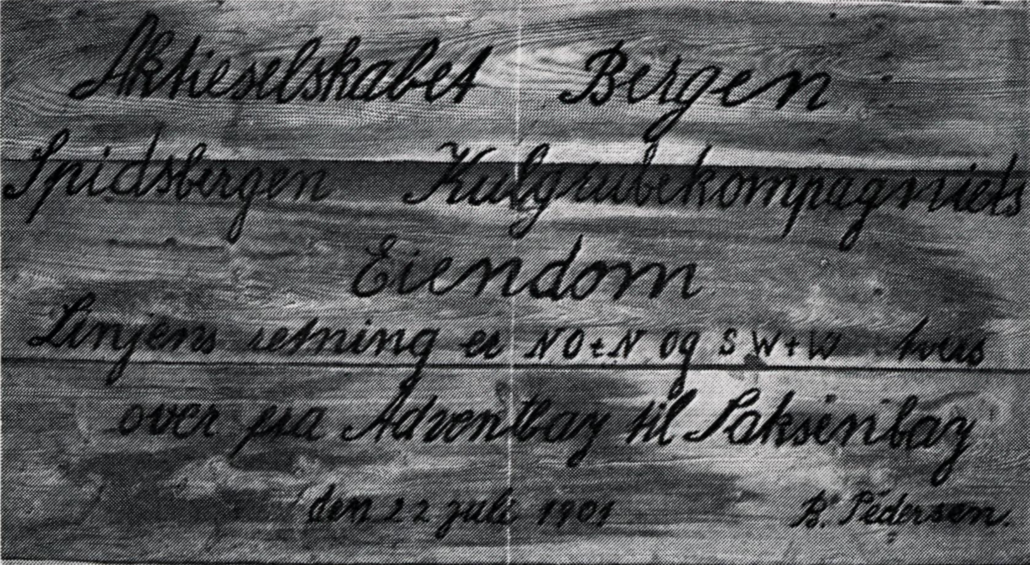 Aktieselskabet Bergen
Spidsbergen Kulgrubekompagniets
Eiendom
Linjens retning er NO t. N og SW t. W tvers
over fra Adventbay til Saksenbay
den 22 juli 1901 B. Pedersen.